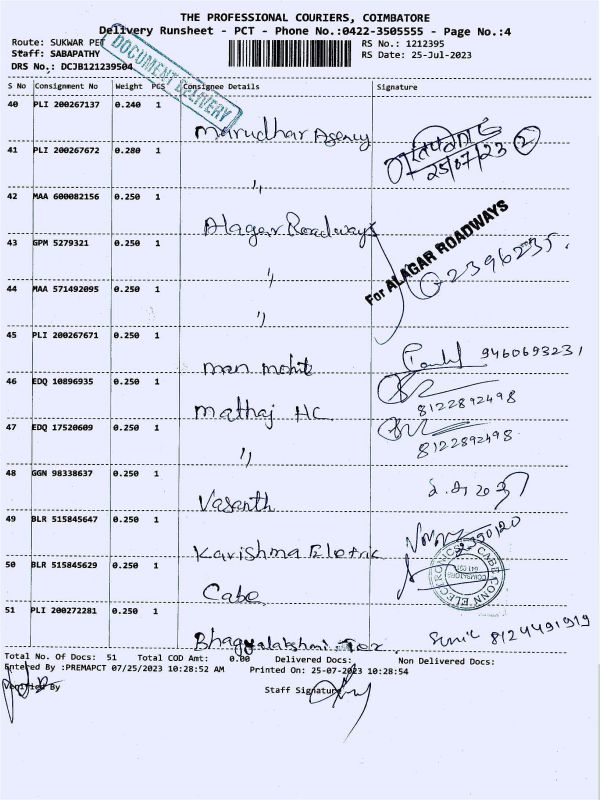 THE PROFESSIONAL COURIERS, COIMBATORE
Delivery Runsheet - PCT - Phone No.:0422-3505555 - Page No.:4
Route: SUKWAR PET
RS No.: 1212395
Staff: SABAPATHY
RS Date: 25-Jul-2023
DRS No.: DCJB121239504
DOCUMENT DELIVERY
S No Consignment No Weight PCS Consignee Details Signature
40 PLI 200267137 0.240 1 Marudhar Agency
41 PLI 200267672 0.280 1 "
25/07/23 2
42 MAA 600082156 0.250 1 Alagar Roadways
43 GPM 5279321 0.250 1 "
For ALAGAR ROADWAYS
2396235.
44 MAA 571492095 0.250 1 "
45 PLI 200267671 0.250 1 man mohit 9460693231
46 EDQ 10896935 0.250 1 Mathaj HC 8122892498
47 EDQ 17520609 0.250 1 " 8122892498
48 GGN 98338637 0.250 1 Vasanth
49 BLR 515845647 0.250 1 Karishma Eletric
50 BLR 515845629 0.250 1 Cabe
51 PLI 200272281 0.250 1 Bhagyalakshmi Tex. Sunil 8124491919
Total No. Of Docs: 51 Total COD Amt: 0.00 Delivered Docs: Non Delivered Docs:
Entered By :PREMAPCT 07/25/2023 10:28:52 AM Printed On: 25-07-2023 10:28:54
Verified By
Staff Signature